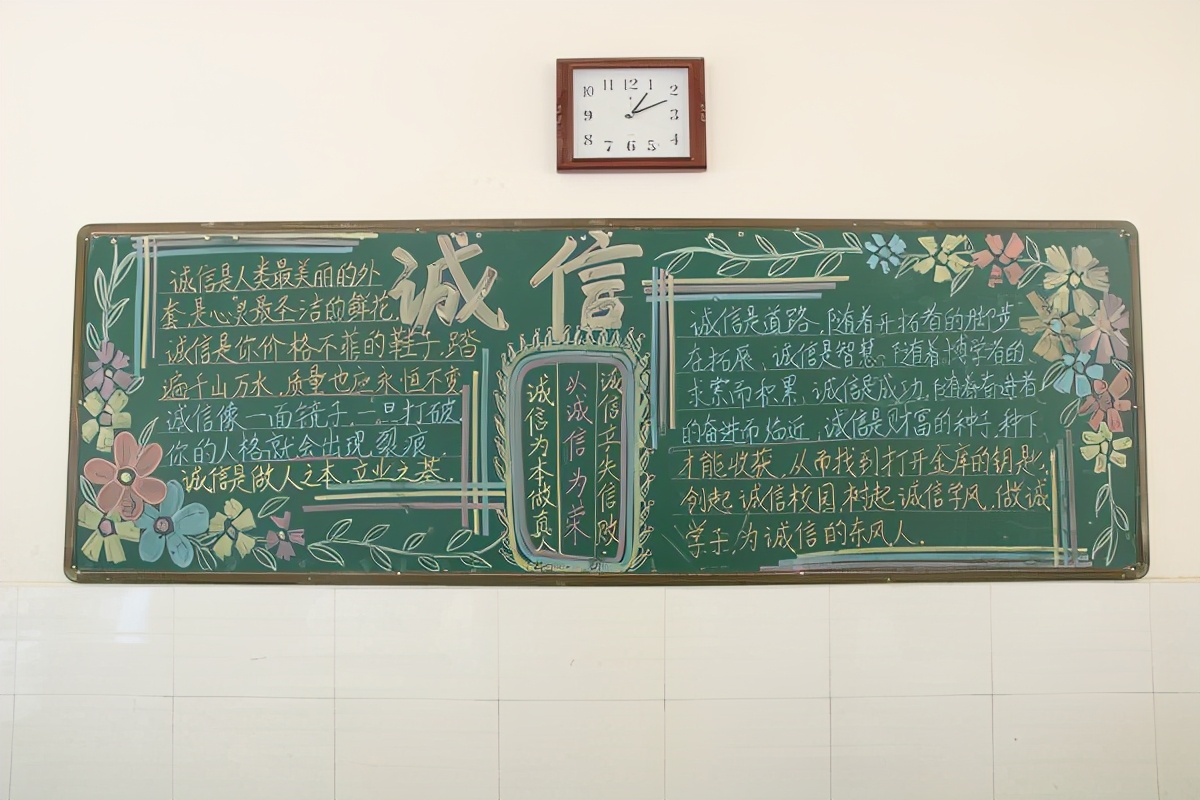 10 11 12 1 2
9 3
8 7 6 5 4
诚信
诚信是人类最美丽的外
套,是心灵最圣洁的鲜花,
诚信是你价格不菲的鞋子,踏
遍千山万水,质量也应永恒不变
诚信像一面镜子,一旦打破,
你的人格就会出现裂痕,
诚信是做人之本,立业之基,
诚信立失信败
以诚信为荣
诚信为本做真人
诚信是道路,随着开拓者的脚步
在拓展,诚信是智慧,随着博学者的
求索而积累,诚信是成功,随着奋进者
的奋进而临近,诚信是财富的种子,种下
才能收获,从而找到打开金库的钥匙,
创起诚信校园,树起诚信学风,做诚
学子,为诚信的东风人.